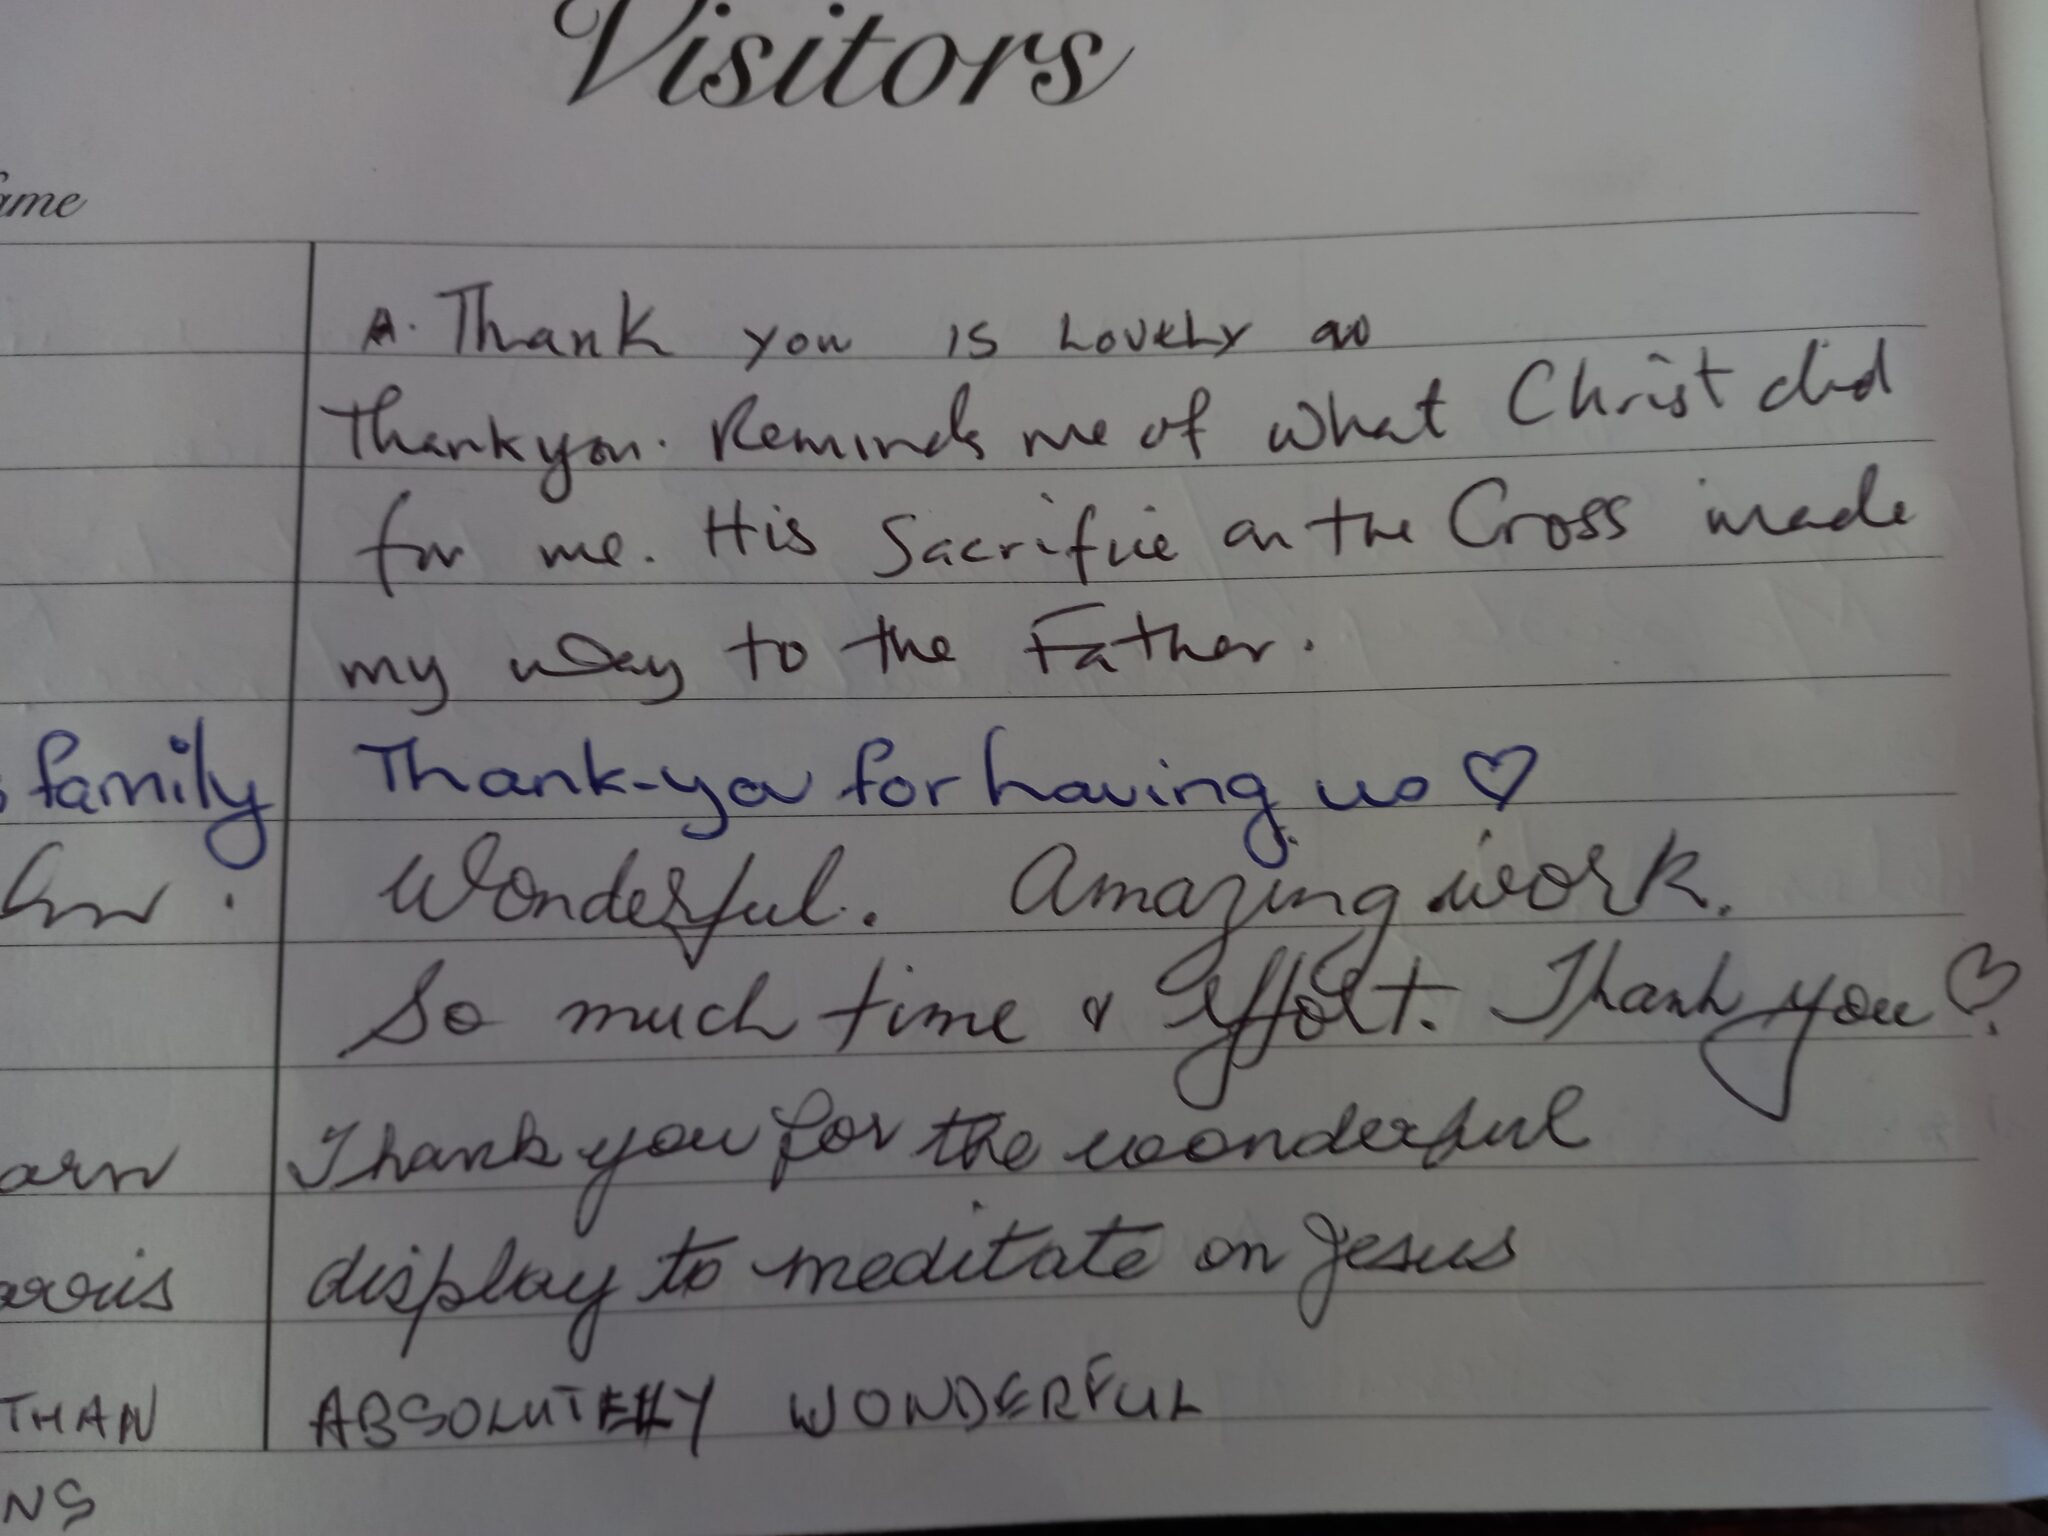 Visitors
ame
A. Thank you is Lovely
Thankyou. Reminds me of what Christ did
for me. His Sacrifice on the Cross made
my way to the Father.
family Thank-you for having us ♡
Wonderful. Amazing work.
So much time & effort. Thank you ♡.
arn Thank you for the wonderful
display to meditate on Jesus
THAN ABSOLUTELY WONDERFUL
NS